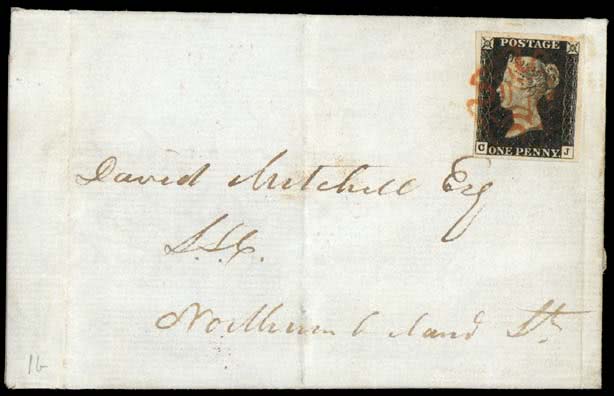 POSTAGE
C J
ONE PENNY
David Mitchell Esq
S.S.C.
Northumberland St.
1b